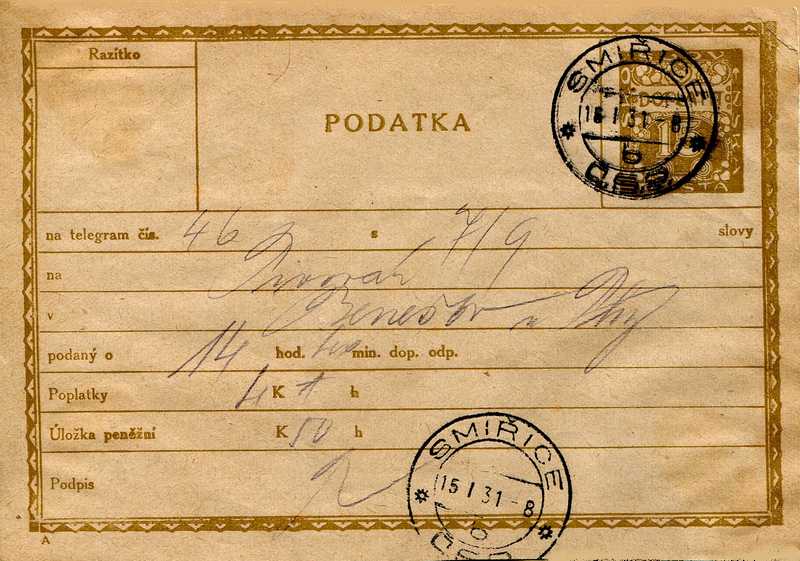 Razítko
PODATKA
SMIŘICE
15 I 31 - 8
b
ČSR
na telegram čís. 46 s 7/9 slovy
na Dvorák
v Benešov u Phy
podaný o 14 hod. min. dop. odp.
Poplatky 4 K h
Úložka peněžní K 50 h
Podpis
SMIŘICE
15 I 31 - 8
b
ČSR
A